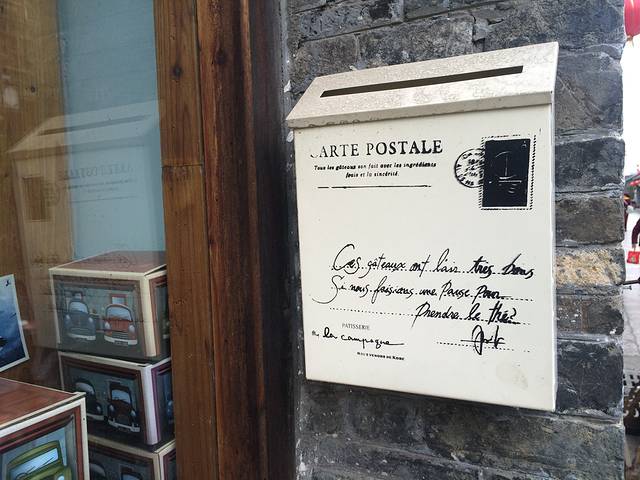 CARTE POSTALE
Tous les gâteaux son fait avec les ingrédients
frais et la sincérité.
Ces gâteaux ont l'air très bons
Si nous faisions une Pause Pour
Prendre le thé?
PATISSERIE
la campagne